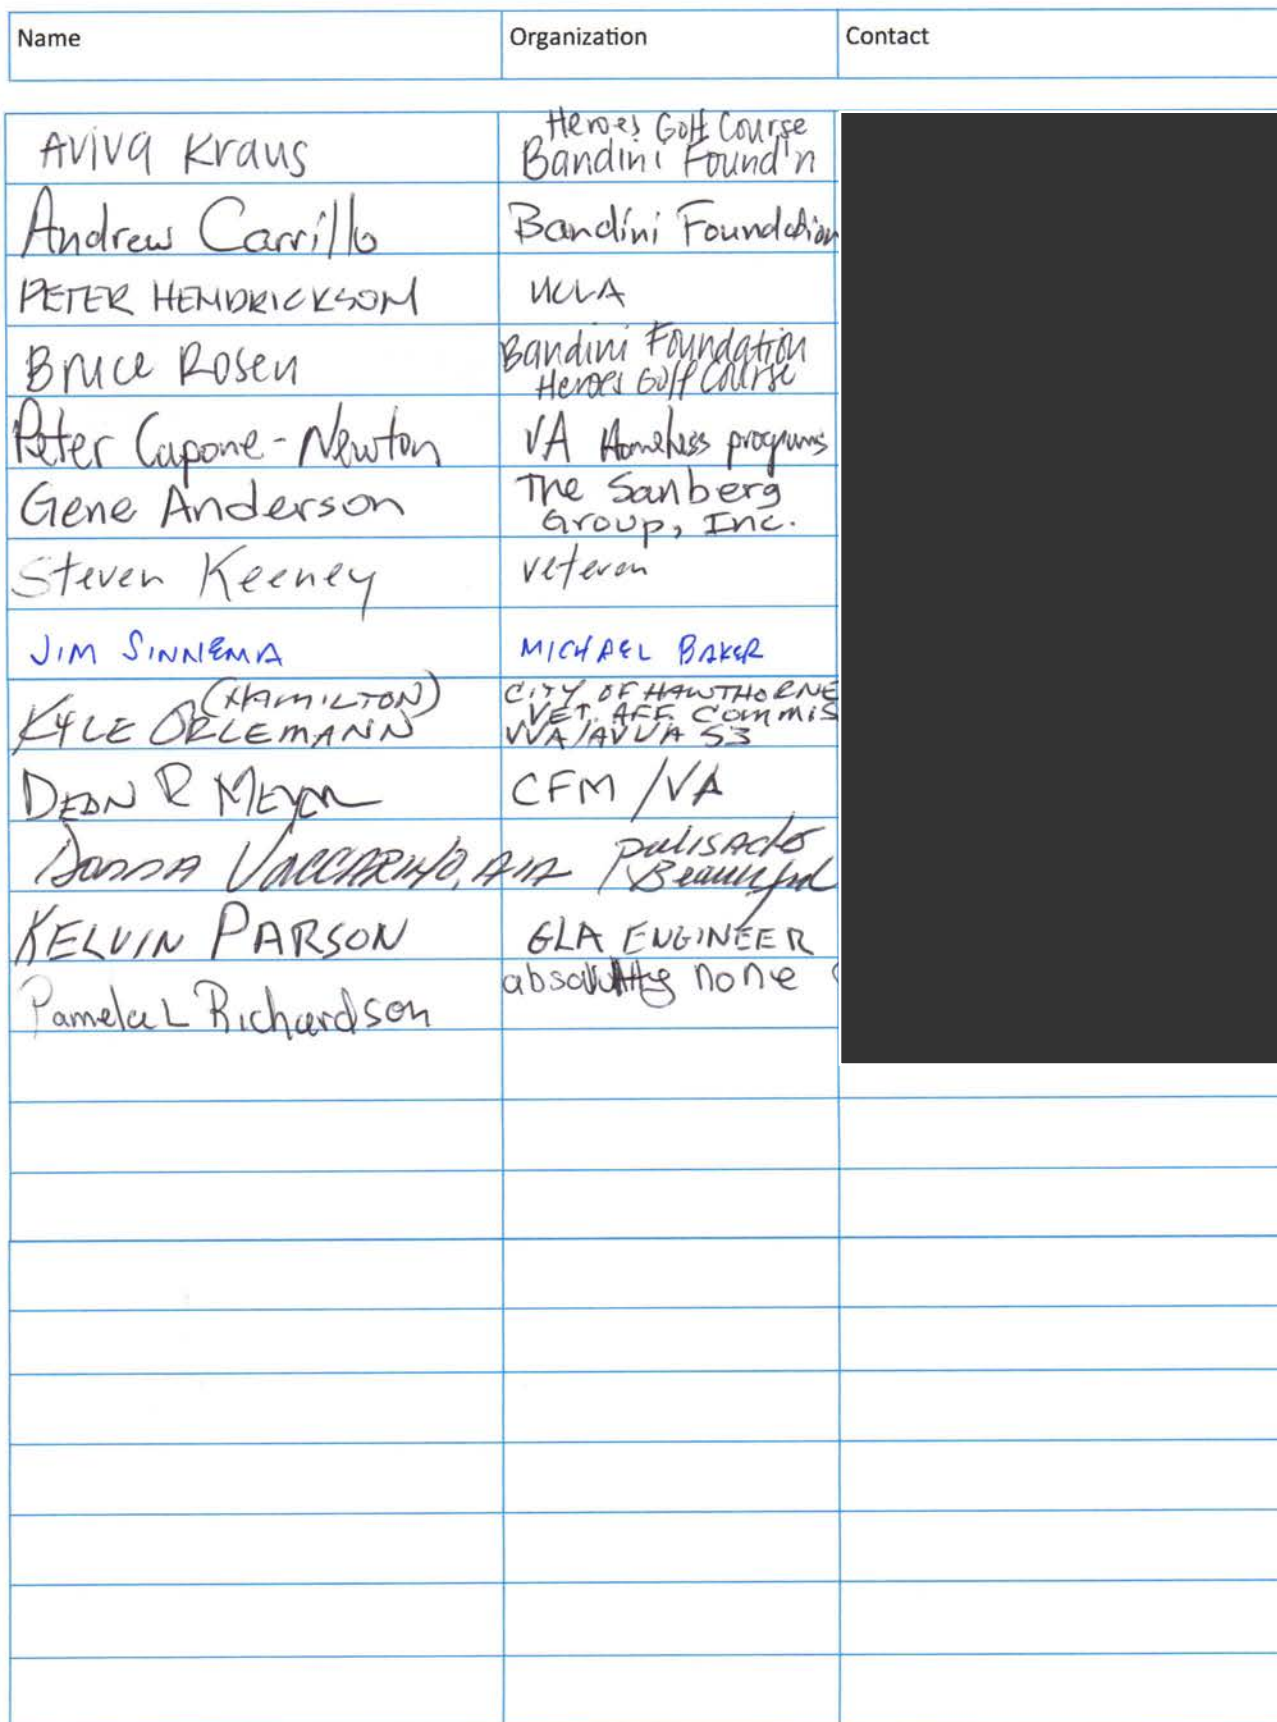 Name Organization Contact
Aviva Kraus Heroes Golf Course
Bandini Found'n
Andrew Carrillo Bandini Foundation
PETER HENDRICKSON UCLA
Bruce Rosen Bandini Foundation
Heroes Golf Course
Peter Capone-Newton VA Homeless programs
Gene Anderson The Sanberg
Group, Inc.
Steven Keeney veteran
JIM SINNEMA MICHAEL BAKER
(HAMILTON) CITY OF HAWTHORNE
KYLE ORLEMANN VET. AFF. COMMIS
VVA/AVVA 53
DEAN R MEYER CFM/VA
VACCARINO, AIA palisades
Beautiful
KELVIN PARSON GLA ENGINEER
Pamela L Richardson none